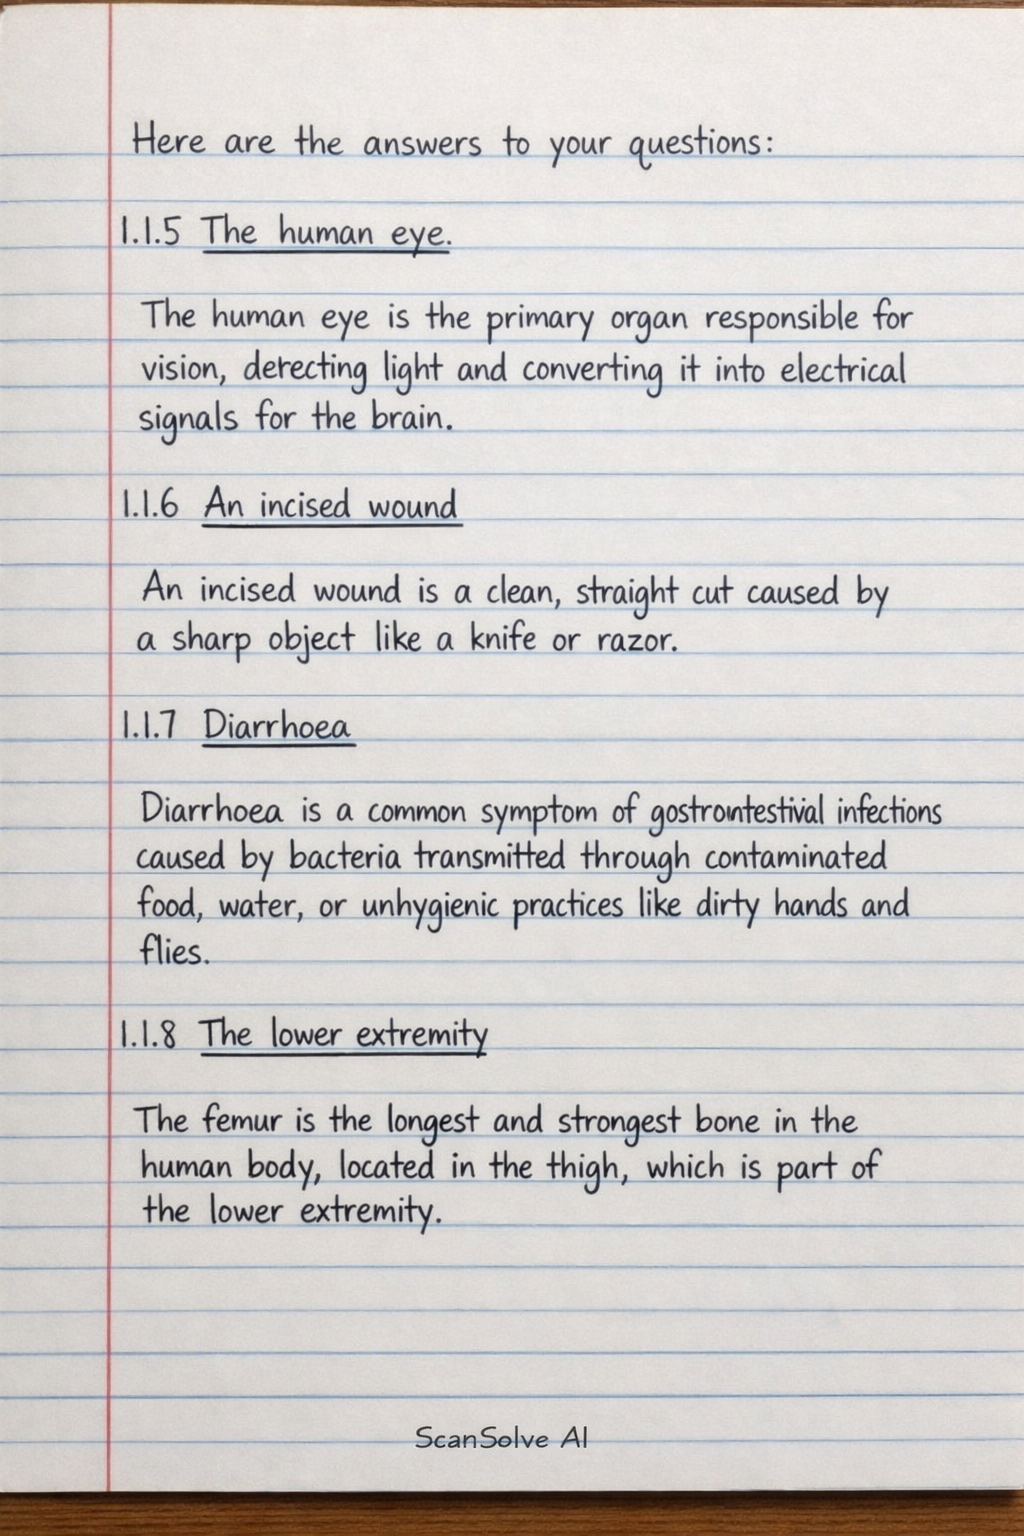 Here are the answers to your questions:
1.1.5 The human eye.
The human eye is the primary organ responsible for
vision, detecting light and converting it into electrical
signals for the brain.
1.1.6 An incised wound
An incised wound is a clean, straight cut caused by
a sharp object like a knife or razor.
1.1.7 Diarrhoea
Diarrhoea is a common symptom of gostrointestival infections
caused by bacteria transmitted through contaminated
food, water, or unhygienic practices like dirty hands and
flies.
1.1.8 The lower extremity
The femur is the longest and strongest bone in the
human body, located in the thigh, which is part of
the lower extremity.
ScanSolve AI